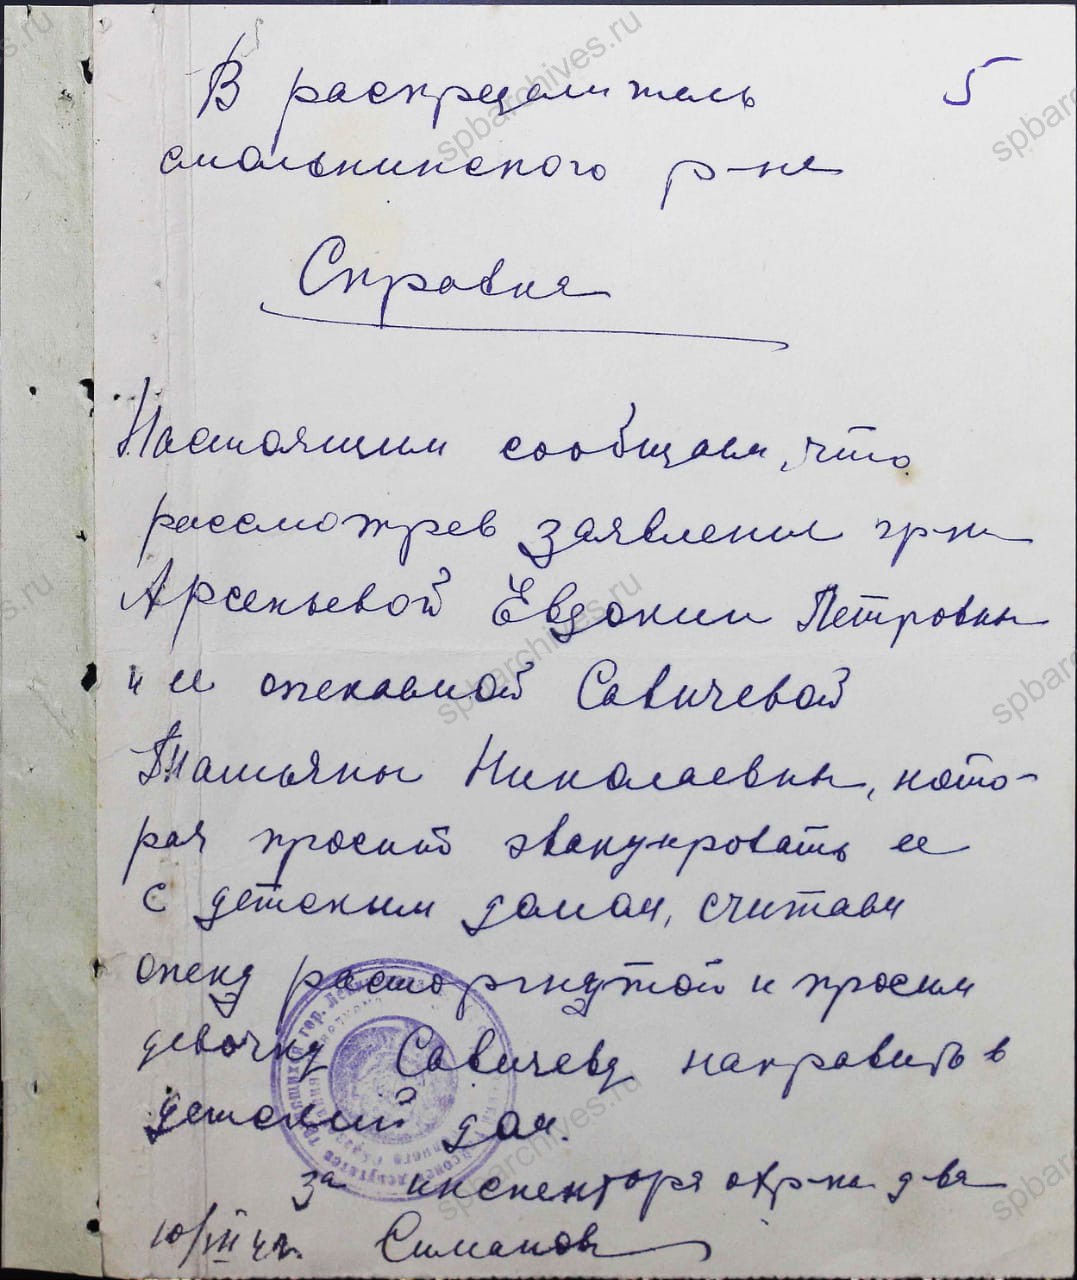 5
В распределитель
смольнинского р-на
Справка
Настоящим сообщаем, что
рассмотрев заявления гр-ки
Арсеньевой Евдокии Петровны
и ее опекаемой Савичевой
Татьяны Николаевны, кото-
рая просит эвакуировать ее
с детским домом, считаем
опеку расторгнутой и просим
девочку Савичеву направить в
детский дом.
за инспектора охр-ны д-ва
10/VII 42г. Симанов
spbarchives.ru